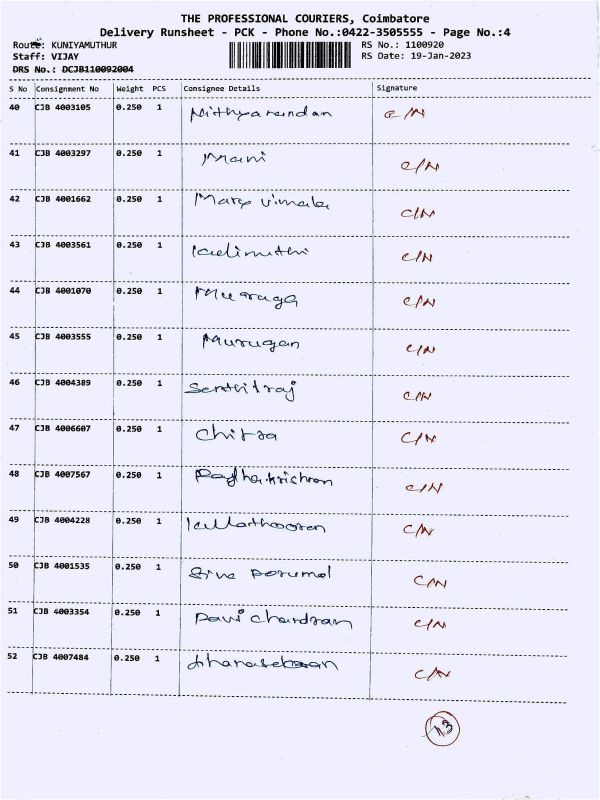 THE PROFESSIONAL COURIERS, Coimbatore
Delivery Runsheet - PCK - Phone No.:0422-3505555 - Page No.:4
Route: KUNIYAMUTHUR RS No.: 1100920
Staff: VIJAY RS Date: 19-Jan-2023
DRS No.: DCJB110092004
S No Consignment No Weight PCS Consignee Details Signature
40 CJB 4003105 0.250 1 Nithyanandan C/N
41 CJB 4003297 0.250 1 Mani C/N
42 CJB 4001662 0.250 1 Mary Vimala C/N
43 CJB 4003561 0.250 1 Kalimuthu C/N
44 CJB 4001070 0.250 1 C/N
45 CJB 4003555 0.250 1 Murugan C/N
46 CJB 4004389 0.250 1 Senthilraj C/N
47 CJB 4006607 0.250 1 Chitra C/N
48 CJB 4007567 0.250 1 C/N
49 CJB 4004228 0.250 1 C/N
50 CJB 4001535 0.250 1 Siva Perumal C/N
51 CJB 4003354 0.250 1 Ravi Chandran C/N
52 CJB 4007484 0.250 1 C/N
13